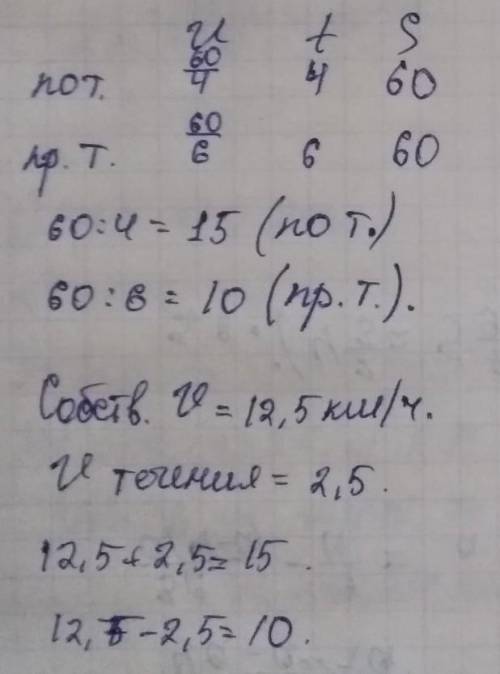 v t S
по т. 60/4 4 60
пр. т. 60/6 6 60
60:4 = 15 (по т.)
60:6 = 10 (пр. т.).
Собств. v = 12,5 км/ч.
v течения = 2,5.
12,5 + 2,5 = 15.
12,5 - 2,5 = 10.